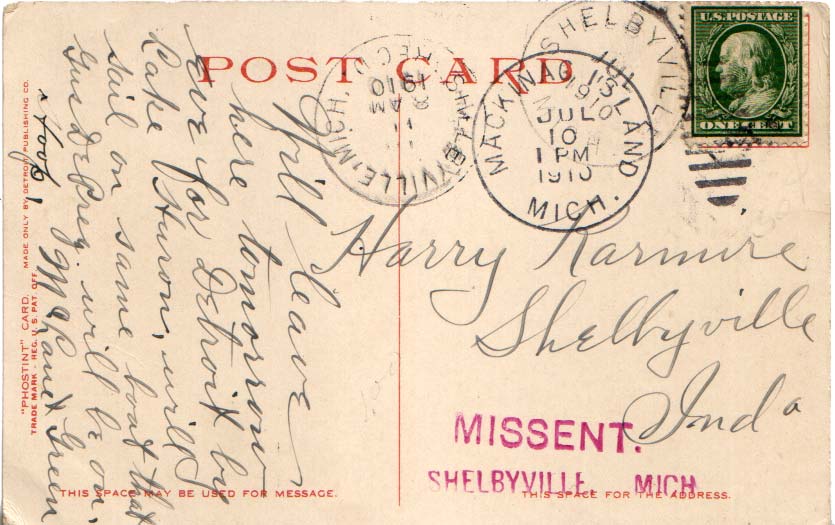 POST CARD
U.S. POSTAGE
ONE CENT
SHELBYVILLE
JUL
1910
MACKINAC ISLAND
JUL
10
1 PM
1910
MICH.
SHELBYVILLE, MICH.
REC'D
11
8 AM
1910
Will leave
here tomorrow
eve for Detroit by
Lake Huron, will
sail on same boat that
will be on.
Green
Harry Karmire
Shelbyville
Ind
MISSENT.
SHELBYVILLE, MICH
THIS SPACE MAY BE USED FOR MESSAGE.
THIS SPACE FOR THE ADDRESS.
"PHOSTINT" CARD. MADE ONLY BY DETROIT PUBLISHING CO.
TRADE MARK - REG. U.S. PAT. OFF.